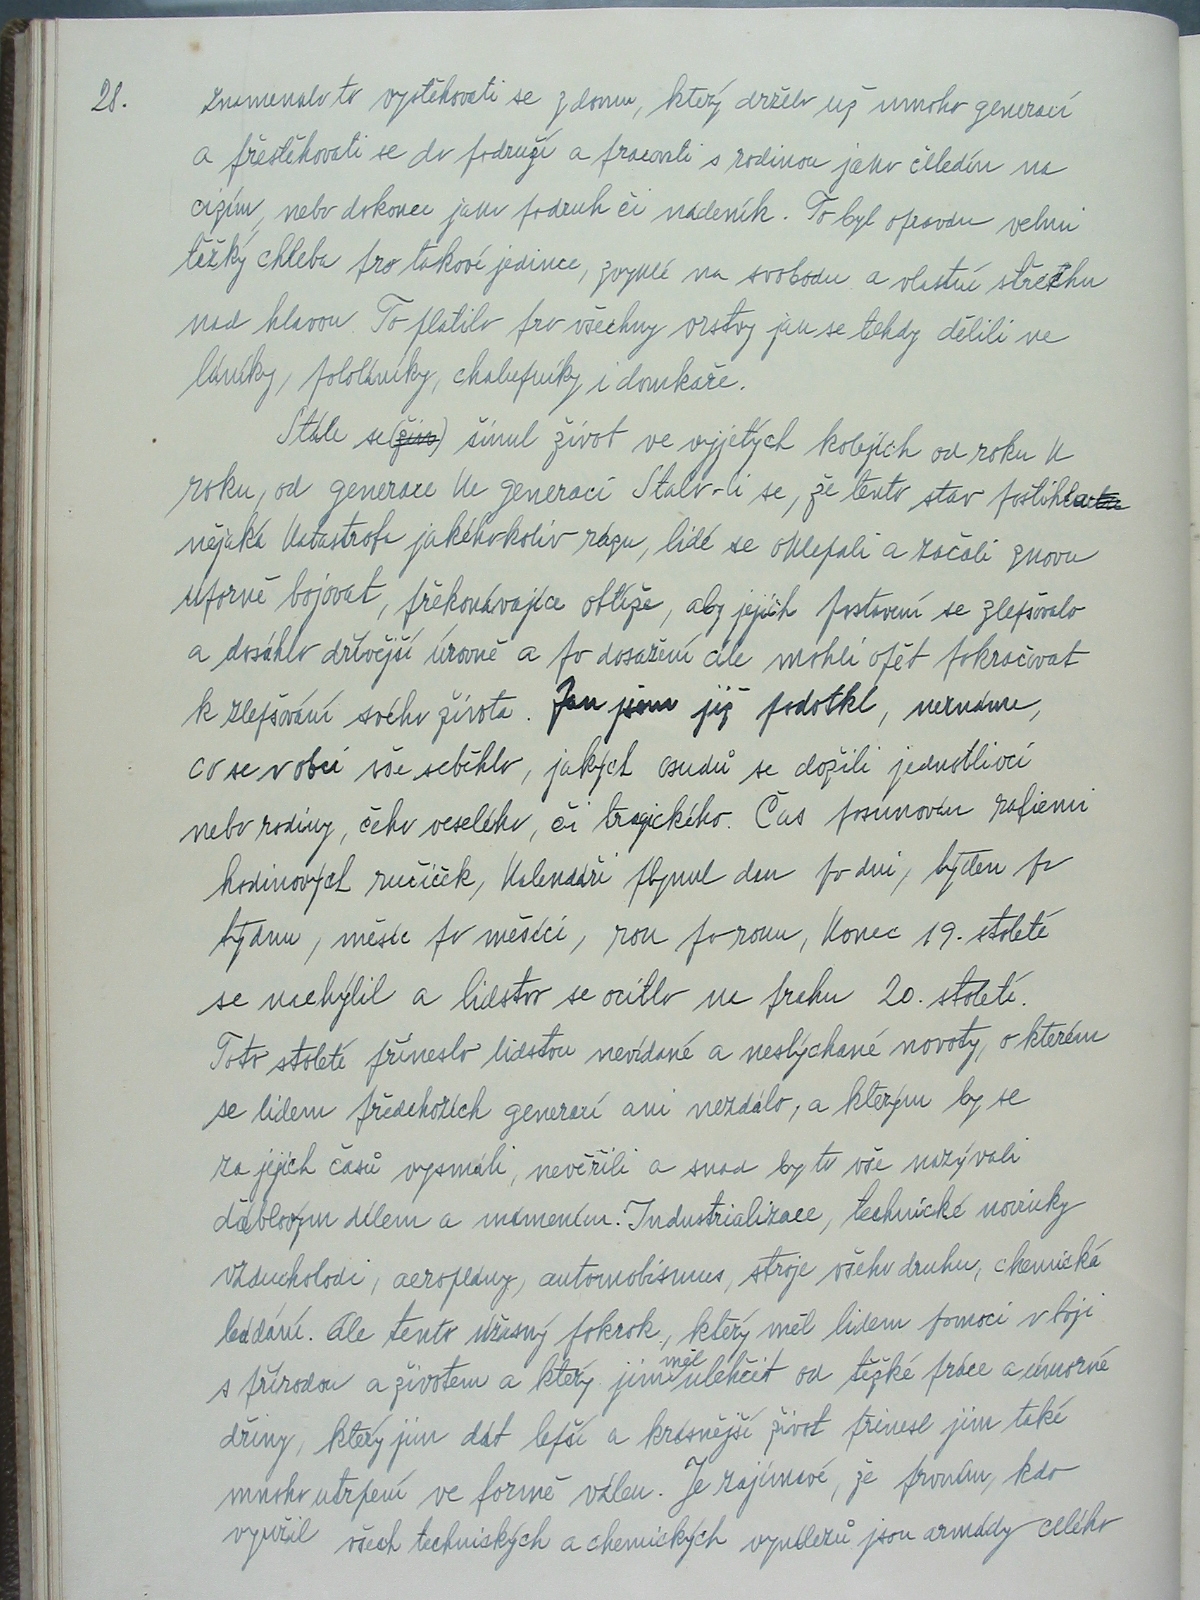 28.
Znamenalo to vystěhovati se z domu, který drželo už mnoho generací
a přestěhovati se do podruží a pracovati s rodinou jako čeledín na
cizím, nebo dokonce jako podruh či nádeník. To byl opravdu velmi
těžký chleba pro takové jedince, zvyklé na svobodu a vlastní střechu
nad hlavou. To platilo pro všechny vrstvy jak se tehdy dělili ve
láníky, pololáníky, chalupníky i domkaře.
Stále se (živ) šinul život ve vyjetých kolejích od roku k
roku, od generace ke generaci. Stalo-li se, že tento stav postihla
nějaká katastrofa jakéhokoliv rázu, lidé se oklepali a začali znovu
úporně bojovat, překonávajíce obtíže, aby jejich postavení se zlepšovalo
a dosáhlo dřívější úrovně a po dosažení cíle mohli opět pokračovat
k zlepšování svého života. Jak jsem již podotkl, neznáme,
co se v obci vše seběhlo, jakých osudů se dožili jednotlivci
nebo rodiny, čeho veselého, či tragického. Čas posunován rafiemi
hodinových ručiček, kalendáři plynul den po dni, týden po
týdnu, měsíc po měsíci, rok po roku, konec 19. století
se nachýlil a lidstvo se ocitlo na prahu 20. století.
Toto století přineslo lidstvu nevídané a neslýchané novoty, o kterém
se lidem předchozích generací ani nezdálo, a kterým by se
za jejich časů vysmáli, nevěřili a snad by to vše nazývali
ďáblovým dílem a mámením. Industrializace, technické novinky
vzducholodi, aeroplány, automobismus, stroje všeho druhu, chemická
bádání. Ale tento úžasný pokrok, který měl lidem pomoci v boji
s přírodou a životem a který jim měl ulehčit od těžké práce a úmorné
dřiny, který jim dát lepší a krásnější život přinesl jim také
mnoho utrpení ve formě válek. Je zajímavé, že prvním, kdo
využil všech technických a chemických vynálezů jsou armády celého